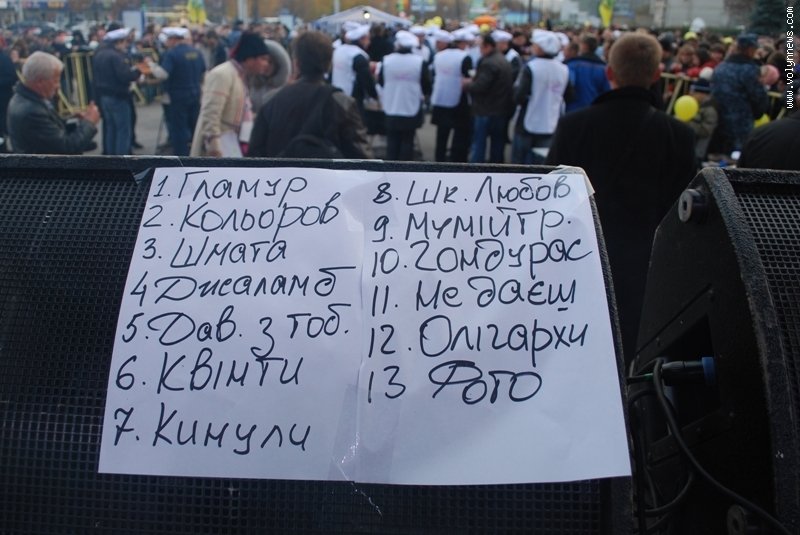 1. Гламур
2. Кольоров
3. Шмата
4 Дисаламб
5. Дав. з тоб.
6. Квінти
7. Кинули
8. Шк. Любов
9. Мумійтр.
10. Гондурас
11. Не даєш
12. Олігархи
13 Фото
www.volynnews.com